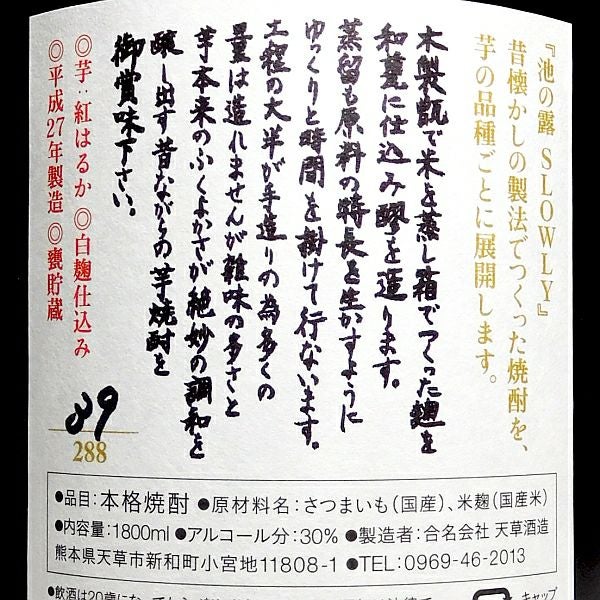 『池の露 SLOWLY』
昔懐かしの製法でつくった焼酎を、
芋の品種ごとに展開します。
木製甑で米を蒸し箱でつくった麹を
和甕に仕込み醪を造ります。
蒸留も原料の特長を生かすように
ゆっくりと時間を掛けて行ないます。
工程の大半が手造りの為多くの
量は造れませんが雑味の多さと
芋本来のふくよかさが絶妙の調和を
醸し出す昔ながらの芋焼酎を
御賞味下さい。
◎芋:紅はるか ◎白麹仕込み
◎平成27年製造 ◎甕貯蔵
89
288
●品目:本格焼酎 ●原材料名:さつまいも(国産)、米麹(国産米)
●内容量:1800ml ●アルコール分:30% ●製造者:合名会社 天草酒造
熊本県天草市新和町小宮地11808-1 ●TEL:0969-46-2013
●飲酒は20歳になってから
キャップ